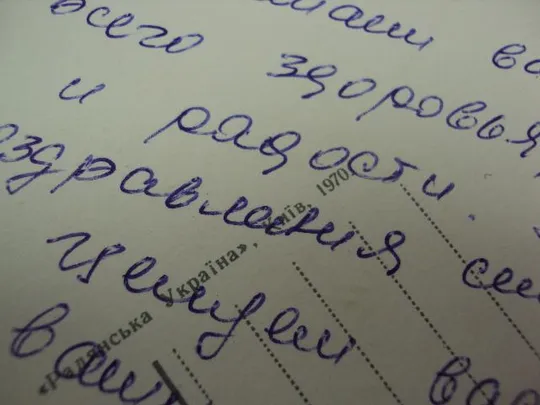 всего
здоровья,
и радости.
здравления
Целуем вас
«Радянська Україна», Київ, 1970